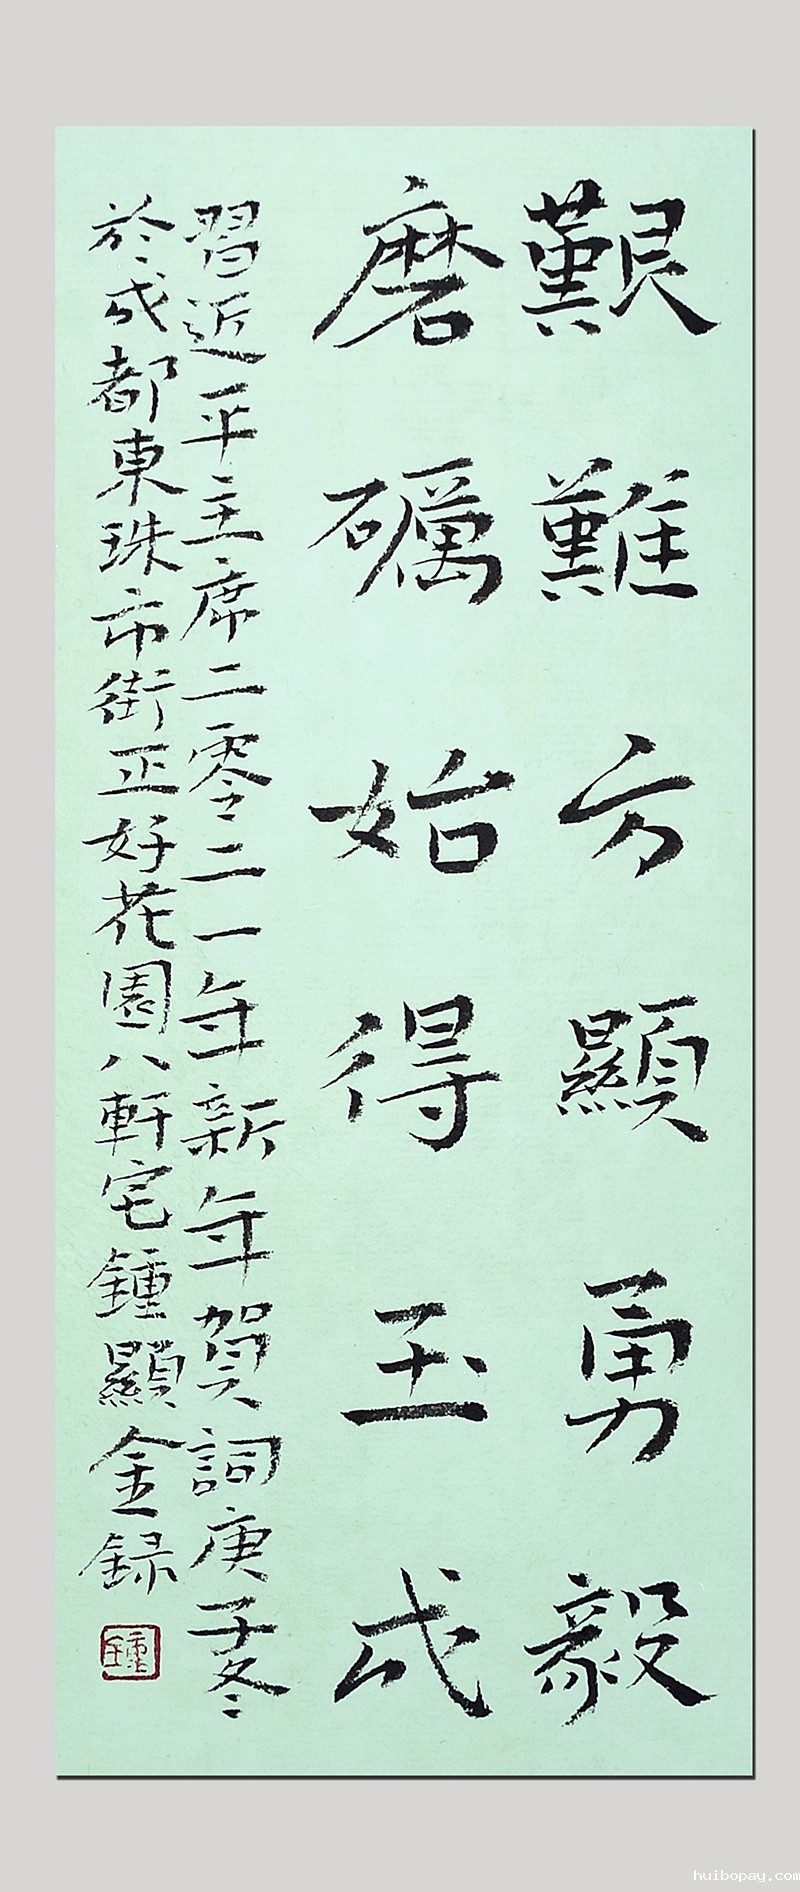 艱難方顯勇毅
磨礪始得玉成
習近平主席二零二一年新年賀詞庚子冬
於成都東珠市街正好花園八軒宅鍾顯金録
鍾
huibopay.com